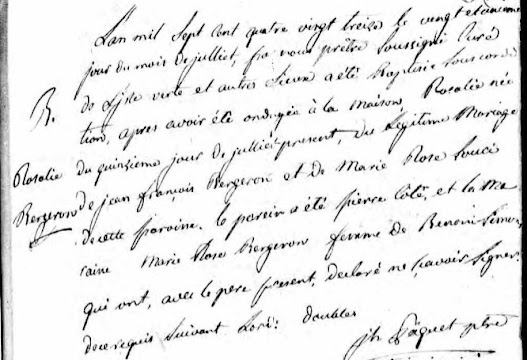 L'an mil sept cent quatre vingt treize le vingt et unieme
jour du mois de juillet, par nous prêtre soussigné Curé
B. de L'isle verte et autres Lieux a été Baptisée sous condi
tion, apres avoir été ondoyée à la maison, Rosalie née
Rosalie du quinzieme jour de juillet present, du Légitime Mariage
Bergeron de jean françois Bergeron et de Marie Rose Souci
de cette paroisse. le parein a été pierre Côté, et la ma
raine Marie Rose Bergeron femme de Benoni
qui ont, avec le pere present, declaré ne sçavoir signer
de ce requis suivant Lord: doubles
jh Pâquet ptre